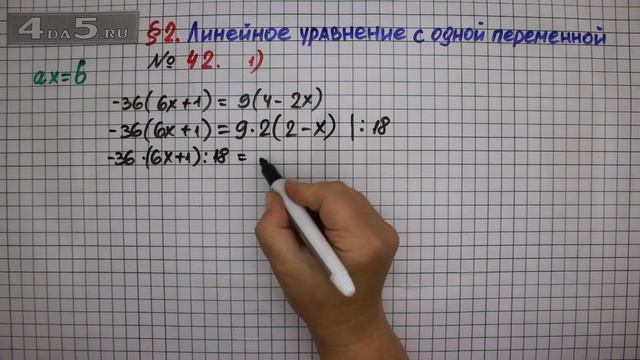 4DA5.RU
§2. Линейное уравнение с одной переменной
№ 42. 1)
ax=b
-36(6x+1) = 9(4-2x)
-36(6x+1) = 9·2(2-x) |:18
-36·(6x+1):18 =